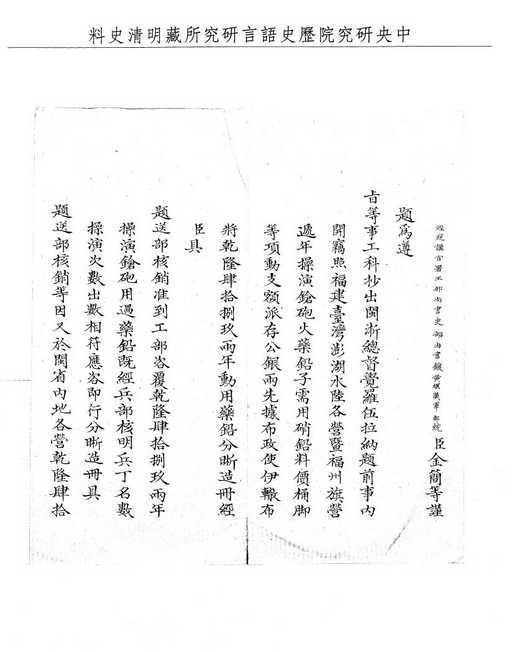 中央研究院歷史語言研究所藏明清史料
經筵講官署工部尚書吏部尚書鑲黃旗漢軍都統臣金簡等謹
題為遵
旨等事工科抄出閩浙總督覺羅伍拉納題前事內
開竊照福建臺灣澎湖水陸各營暨福州旗營
遞年操演鎗砲火藥鉛子需用硝鉛料價桶腳
等項動支額派存公銀兩先據布政使伊轍布
將乾隆肆拾捌玖兩年動用藥鉛分晰造冊經
臣具
題送部核銷准到工部咨覆乾隆肆拾捌玖兩年
操演鎗砲用過藥鉛既經兵部核明兵丁名數
操演次數出數相符應咨即行分晰造冊具
題送部核銷等因又於閩省內地各營乾隆肆拾